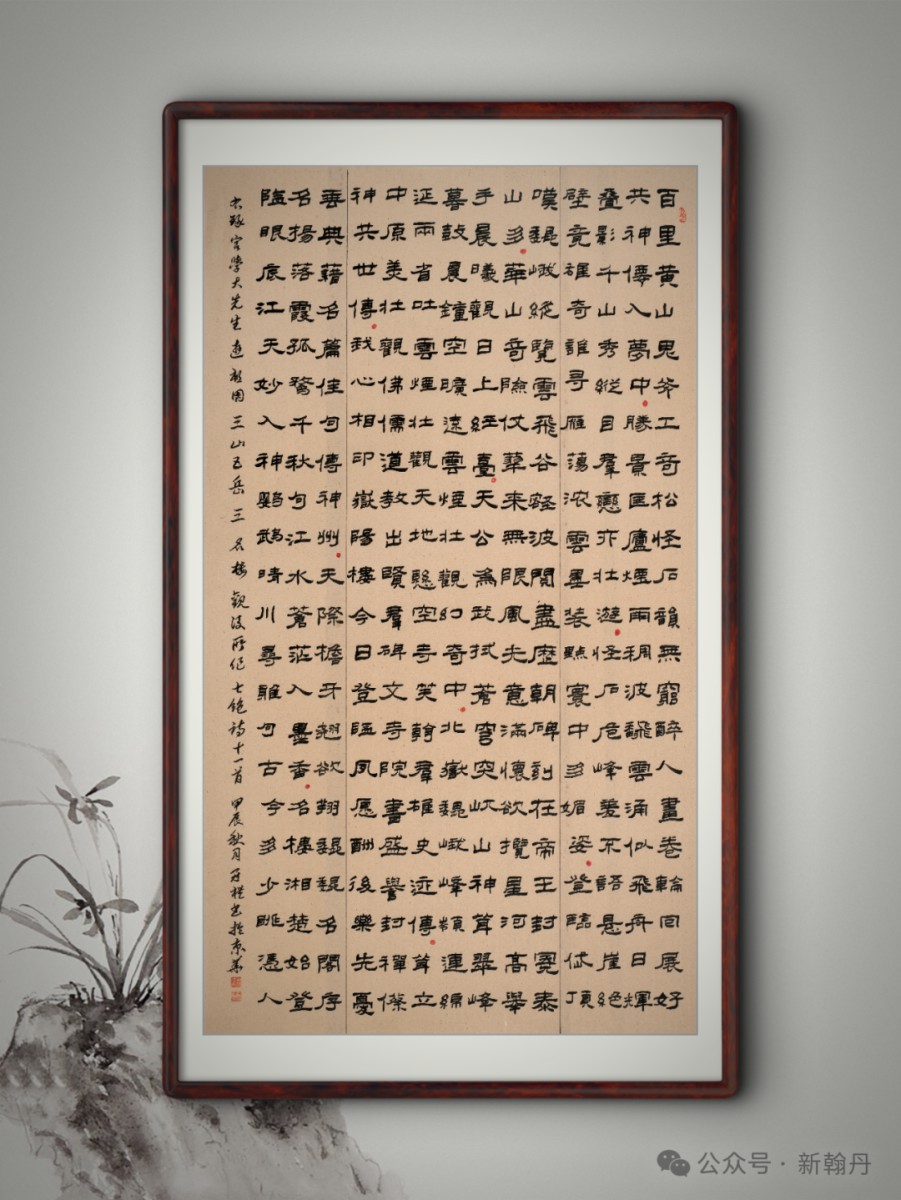 百里黄山鬼斧工奇松怪石韻無窮醉人畫卷輪回展好
共神僊入夢中勝景匡廬煙雨稠波飜雲涌似飛舟日輝
疊影千山秀縱目羣巒亦壯遊怪石危峰羞不語懸崖絕
壁竟雄奇誰尋雁蕩浓雲墨装點寰中多媚姿登臨岱頂
嘆巍峨縱覽雲飛谷壑波閱盡歷朝碑刻在帝王封冕泰
山多華山奇險仗藜來無限風光意滿懷欲攬星河高舉
手晨曦觀日上經臺天公為我拭蒼穹突屹山神聳翠峰
暮鼓晨鐘空曠遠雲煙壯觀幻奇中北嶽巍峨峰嶺連綿
延兩省吐雲煙壯觀天地懸空寺笑翰羣雄史迹傳聳立
中原美壯觀佛儒道教出賢羣碑文寺院書盛譽封禪傑
神共世傳我心相印嶽陽樓今日登臨夙愿酬後樂先憂
垂典藉名篇佳句傳神州天際檐牙翹欲翔巍巍名閣序
名揚落霞孤鶩千秋句江水蒼茫入墨香名樓湘楚始登
臨眼底江天妙入神鸚鵡晴川尋雅句古今多少眺憑人
學大先生遊祖国三山五岳三名樓觀後所作七绝詩十一首甲辰秋月书於京華
公众号·新翰丹